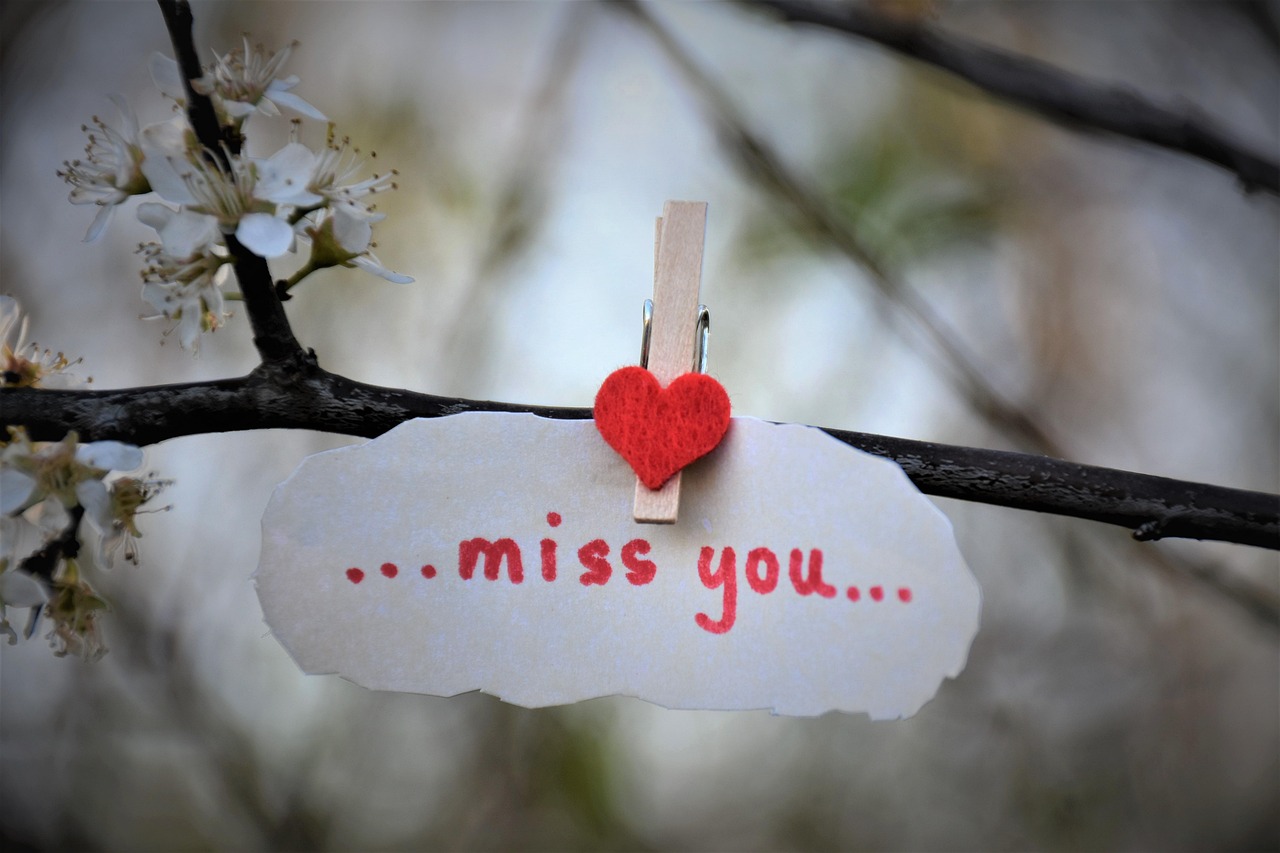 ...miss you...